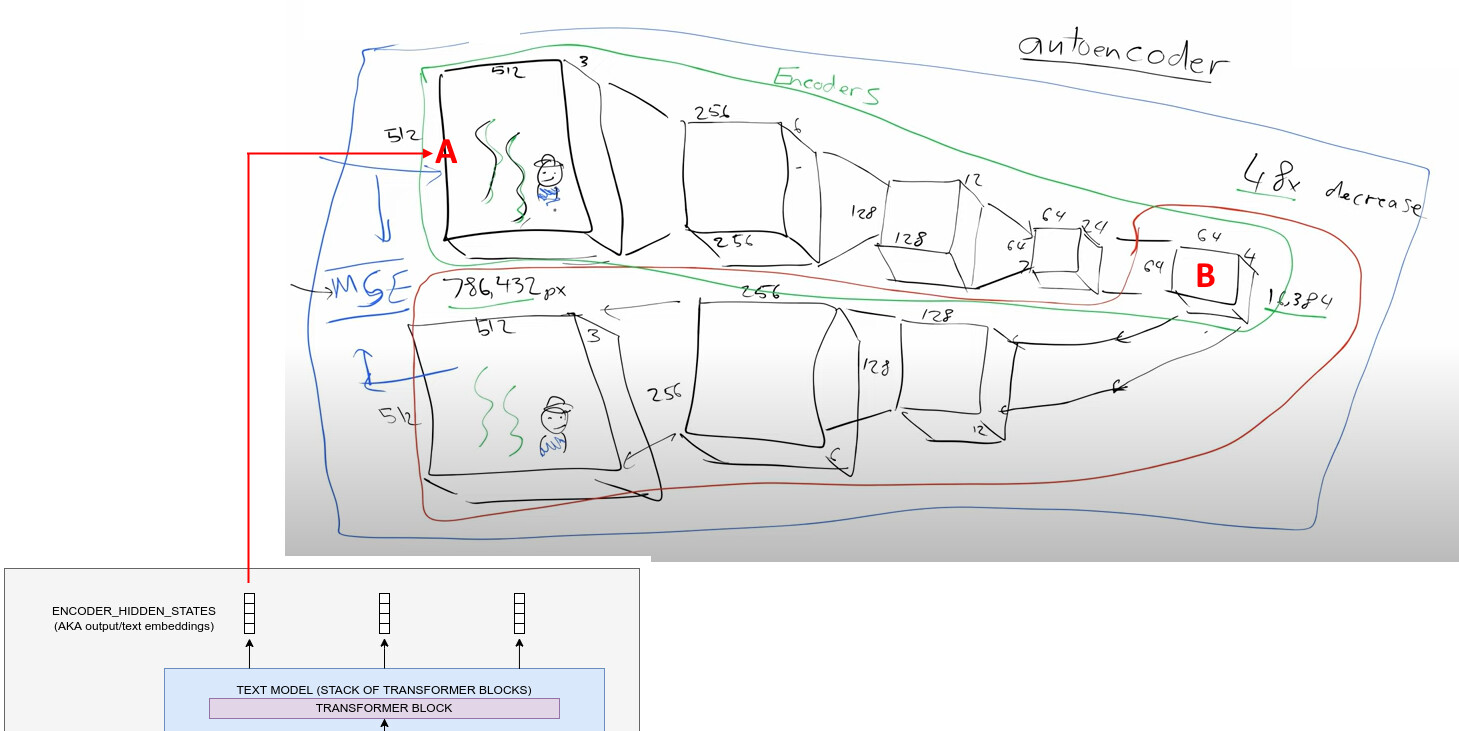 autoencoder
Encoders
512
3
512
A
256
6
256
12
128
128
64
24
64
64
4
64
B
48x decrease
16,384
MSE
786,432 px
512
3
512
256
256
6
128
128
12
ENCODER_HIDDEN_STATES
(AKA output/text embeddings)
TEXT MODEL (STACK OF TRANSFORMER BLOCKS)
TRANSFORMER BLOCK